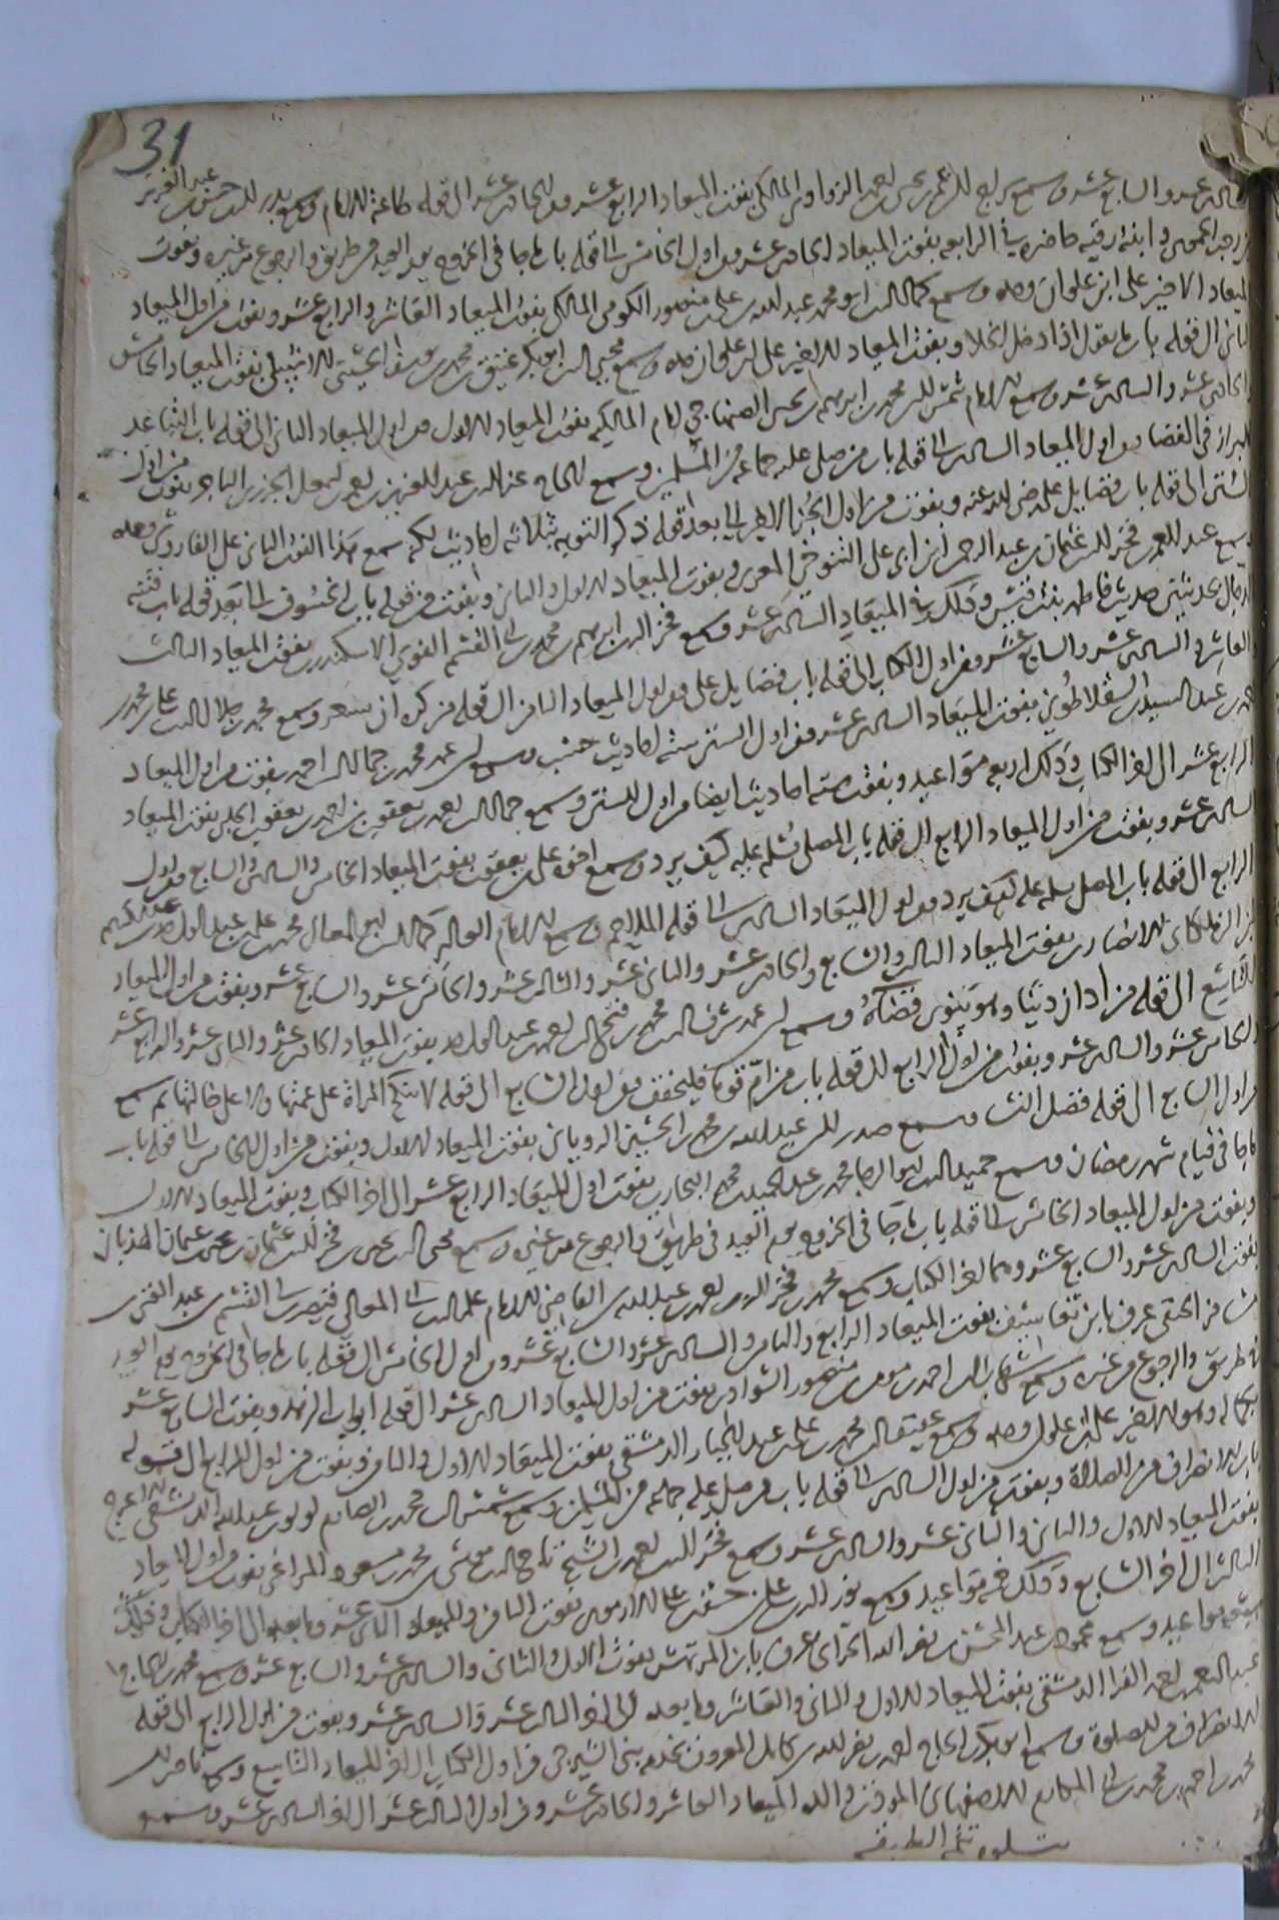 31
عشر والسابع عشر وسمع المالكي بفوت الميعاد الرابع عشر ومن الحادي عشر الى قوله طاعة الامام وسمع بدر الدين حسن بن عبد العزيز
وابنة رقية حاضرة في الرابعة بفوت الميعاد الحادي عشر ومن اول الخامس الى قوله باب ما جا في الخروج يوم العيد من طريق والرجوع من غيره وبفوت
الميعاد الاخير على ابن علوان وحده وسمع كمال الدين ابو محمد عبد الله بن علي بن منصور الكومي المالكي بفوت الميعاد العاشر والرابع عشر وبفوت من اول الميعاد
الثاني الى قوله باب ما يقول اذا دخل الخلا وبفوت الميعاد الاخير على ابن علوان وحده وسمع مجير الدين ابو بكر عتيق بن محمد بفوت الميعاد الخامس
والحادي عشر والسادس عشر وسمع الامام شمس الدين محمد بن ابرهيم بن يحيى الصنهاجي امام المالكية بفوت الميعاد الاول ومن اول الميعاد الثاني الى قوله باب التباعد
للبراز في الفضا ومن اول الميعاد السادس الى قوله باب من صلى عليه جماعة من المسلمين وسمع الحاج عز الدين عبد العزيز الجزري التاجر بفوت من اول
الستين الى قوله باب فضايل علي رضي الله عنه وبفوت من اول الجزء الى بعد قوله ذكر التوبه بثلاثة احاديث لكنه سمع هذا الفوت الثاني على الفاروثي وحده
وسمع فخر الدين عثمان بن عبد الرحمن ابن ابي علي التنوخي المعري بفوت الميعاد الاول والثاني وبفوت من قوله باب الخسوف الى بعد قوله باب فتنة
الدجال بحديثين حديث فاطمة بنت قيس وذلك في الميعاد السادس عشر وسمع فخر الدين ابرهيم بن محمد بن ابي القسم الفوي الاسكندري بفوت الميعاد الثالث
العاشر والسادس عشر والسابع عشر ومن اول الكتاب الى قوله باب فضايل علي ومن اول الميعاد الثامن الى قوله من كره ان يسعر وسمع محمد بن جلال الدين علي بن محمد
بن عبد السيد السقلاطوني بفوت الميعاد السادس عشر ومن اول الستين ستة احاديث حسب وسمع محمد بن جمال الدين احمد بفوت من اول الميعاد
الرابع عشر الى اخر الكتاب وذلك اربع مواعيد وبفوت ستة احاديث ايضا من اول الستين وسمع جمال الدين يعقوب بن احمد بن يعقوب الحلبي بفوت الميعاد
السادس عشر وبفوت من اول الميعاد الرابع الى قوله باب المصلي يسلم عليه كيف يرد وسمع اخوه علي بن يعقوب بفوت الميعاد الخامس والسادس والسابع ومن اول
الرابع الى قوله باب المصلي يسلم عليه كيف يرد ومن اول الميعاد السادس الى قوله الملاحم وسمع الامام العالم كمال الدين ابو المعالي محمد بن علي بن عبد الواحد بن عبد الكريم
ابن الزملكاني الانصاري بفوت الميعاد الثالث والسابع والحادي عشر والثاني عشر والثالث عشر والخامس عشر والسابع عشر وبفوت من اول الميعاد
التاسع الى قوله من ادان دينا وهو ينوي قضاه وسمع محمد بن فتح الدين احمد بن عبد الواحد بفوت الميعاد الحادي عشر والثاني عشر والرابع عشر
والخامس عشر والسادس عشر وبفوت من اول الرابع الى قوله باب من ام قوما فليخفف ومن اول السابع الى قوله لا تنكح المراة على عمتها ولا على خالتها ثم سمع
من اول السابع الى قوله فضل النسا وسمع صدر الدين عبد الله بن محمد بن الحسين الروياني بفوت الميعاد الاول وبفوت من اول الخامس الى قوله باب
ما جا في قيام شهر رمضان وسمع حميد الدين ابو الرضا محمد بن عبد الحميد بن محمد البخاري بفوت اول الميعاد الرابع عشر الى اخر الكتاب وبفوت الميعاد الاول
وبفوت من اول الميعاد الخامس الى قوله باب ما جا في الخروج يوم العيد في طريق والرجوع من غيره وسمع محيي الدين يحيى بن فخر الدين عثمان بن يحيى بن عثمان الهذباني
بفوت السادس عشر والسابع عشر وهما اخر الكتاب وسمع محمد بن فخر الدين احمد بن عبد الله بن القاضي الامام علم الدين ابي المعالي قيصر بن ابي القسم بن عبد الغني بن
مسافر الحنفي عرف بابن تعاسيف بفوت الميعاد الرابع والثامن والسادس عشر والسابع عشر ومن اول الخامس الى قوله باب ما جا في الخروج يوم العيد
في طريق والرجوع من غيره وسمع شهاب الدين احمد بن موسى بن منصور الشوادي بفوت من اول الميعاد السادس عشر الى قوله ابواب الزهد وبفوت السابع عشر
بكماله وهو الاخير على ابن علوان وحده وسمع عفيف الدين محمد بن علي بن عبد الجبار الدمشقي بفوت الميعاد الاول والثامن وبفوت من اول الرابع الى قوله
باب الانصراف من الصلاة وبفوت من اول السادس الى قوله باب من صلى عليه جماعة من المسلمين وسمع شمس الدين محمد بن الصارم لولو بن عبد الله الدمشقي الاعرج
بفوت الميعاد الاول والثاني والثاني عشر والسادس عشر وسمع فخر الدين احمد بن الشيخ تاج الدين موسى بن محمد بن مسعود المراغي بفوت من اول الميعاد
الثالث الى اخر السابع وذلك خمسة مواعيد وسمع نور الدين علي بن حسن بن علي الارموي بفوت الثامن والميعاد الثاني عشر وما بعده الى اخر الكتاب وذلك
ستة مواعيد وسمع محمود بن عبد المحسن بن نصر الله الحراني عرف بابن المرتعش بفوت الاول والثاني والسادس عشر والسابع عشر وسمع محمد بن الحاج
عبد الله بن محمد الفرا الدمشقي بفوت الميعاد الاول والثاني والعاشر وما بعده الى اخر الثالث عشر والسادس عشر وبفوت من اول الرابع الى قوله
الانصراف من الصلوة وسمع ابو بكر بن الحاج احمد بن نصر الله بن كامل المعروف بخدمة بني الشيرجي من اول الكتاب الى اخر الميعاد التاسع وسمع ناصر الدين
محمد بن احمد بن محمد بن ابي المكارم الاصفهاني الموذن والده الميعاد العاشر والحادي عشر ومن اول الثالث عشر الى اخر السادس عشر وسمع
يتلوه تتمة الطبقة